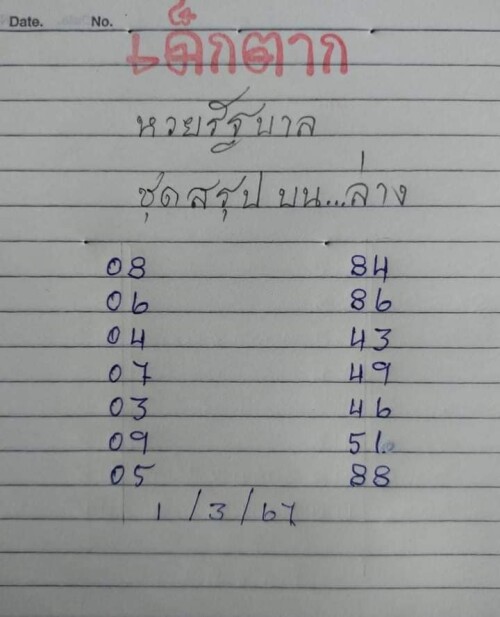 Date. No.
เด็กตาก
หวยรัฐบาล
ชุดสรุป บน...ล่าง
08 84
06 86
04 43
07 49
03 46
09 51
05 88
1/3/67